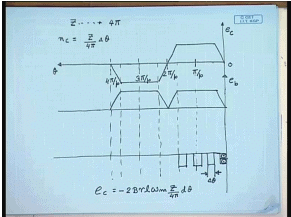 Z ‑‑‑‑→ 4π
n_c = Z/4π dθ
e_c
θ
4π/p
3π/p
2π/p
π/p
0
e_b
dθ
e_c = -2Brlωm Z/4π dθ